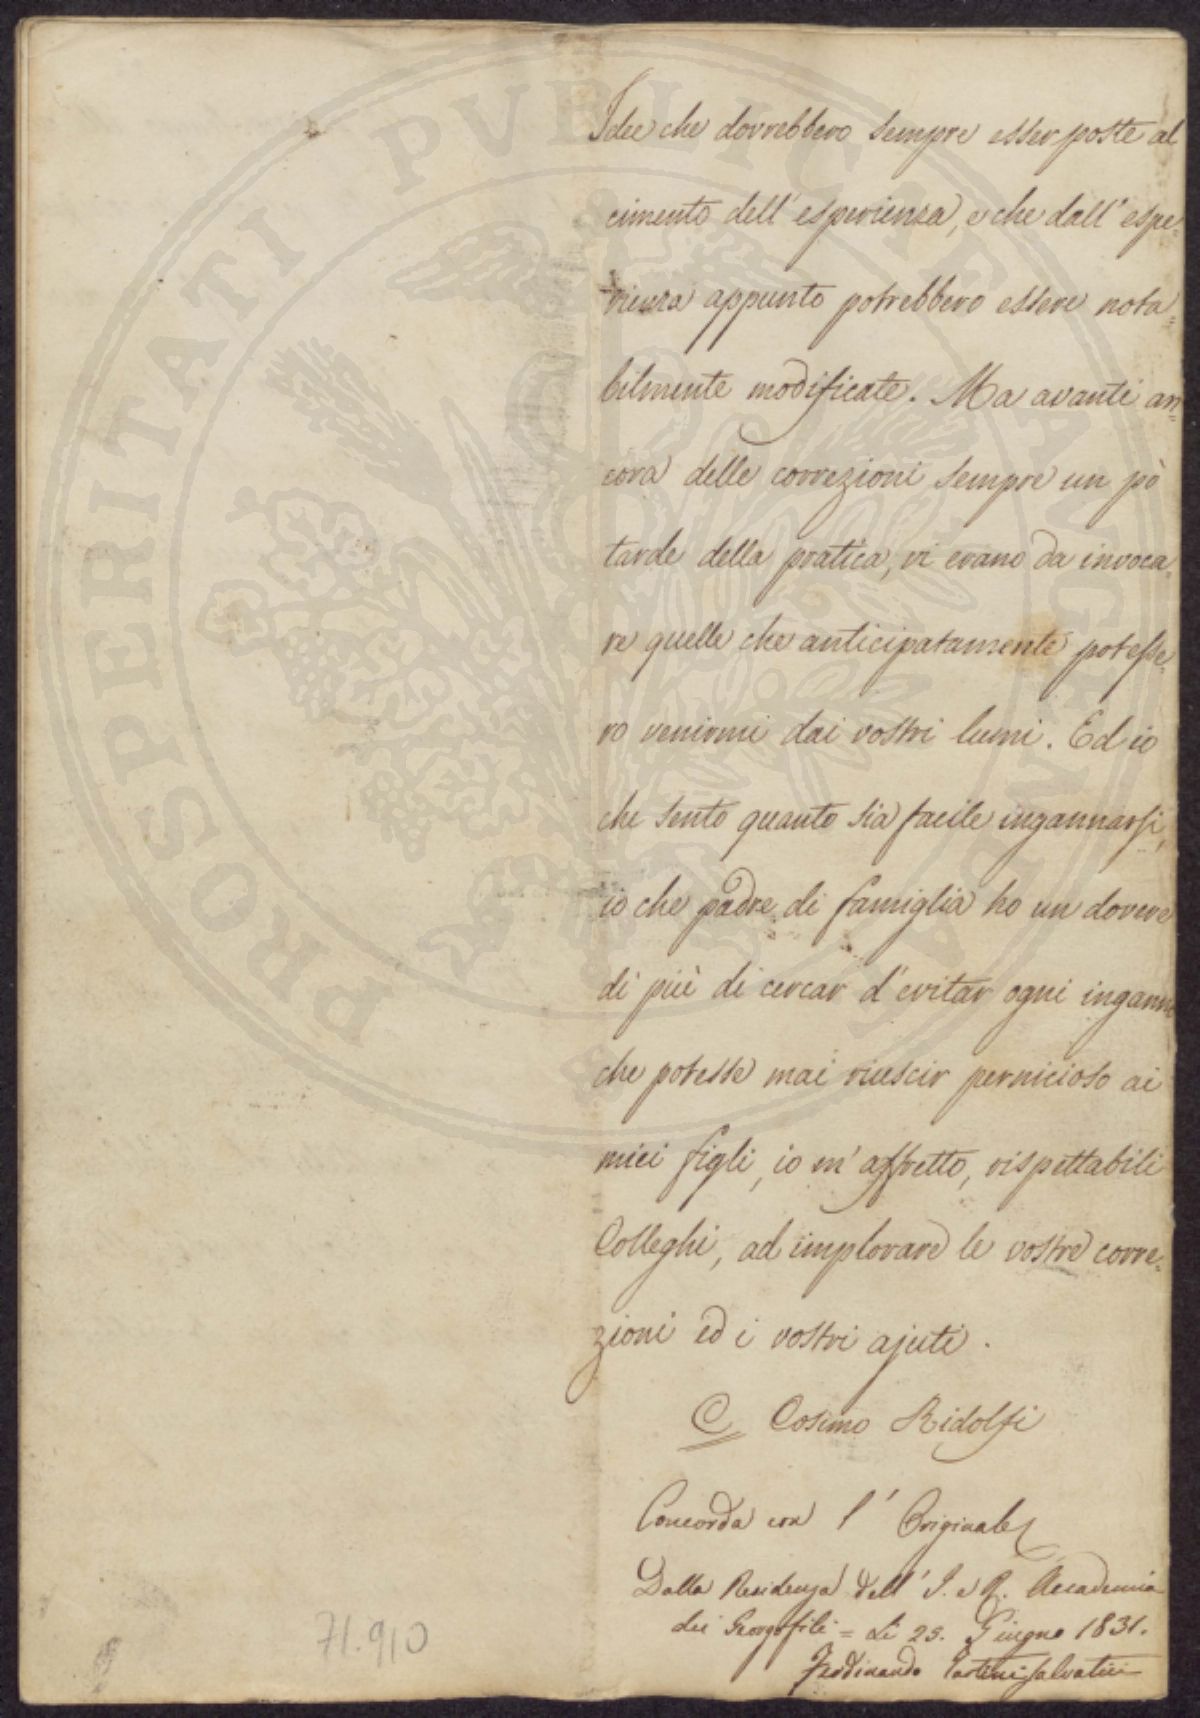 Idee che dovrebbero sempre esser poste al
cimento dell'esperienza, e che dall'espe=
rienza appunto potrebbero essere nota=
bilmente modificate. Ma avanti an=
cora delle correzioni sempre un pò
tarde della pratica, vi erano da invoca=
re quelle che anticipatamente potesse=
ro venirmi dai vostri lumi. Ed io
che sento quanto sia facile ingannarsi,
io che padre di famiglia ho un dovere
di più di cercar d'evitar ogni inganno
che potesse mai riuscir pernicioso ai
miei figli, io m'affretto, rispettabili
Colleghi, ad implorare le vostre corre=
zioni ed i vostri ajuti.
C Cosimo Ridolfi
Concorda con l'Originale
Dalla Residenza dell'I. e R. Accademia
dei Georgofili = Li 25. Giugno 1831.
Ferdinando Tartini Salvatici
71.910
PROSPERITATI PVBLICAE AVGENDAE